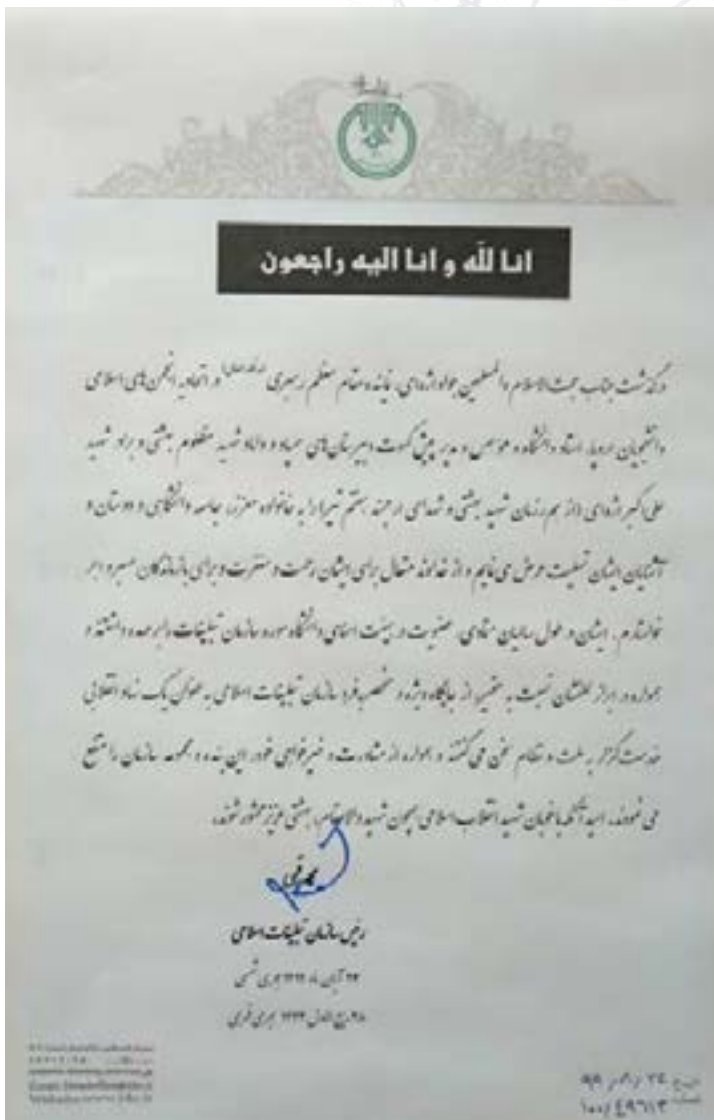 انا لله و انا الیه راجعون
درگذشت جناب حجت الاسلام والمسلمین جواد اژه‌ای، نماینده مقام معظم رهبری در اتحادیه انجمن های اسلامی
دانشجویان اروپا، استاد دانشگاه و موسس و مدیر پیش کسوت دبیرستان های و داماد شهید مظلوم بهشتی و برادر شهید
علی اکبر اژه‌ای (از هم رزمان شهید بهشتی و شهدای ارجمند هفتم تیر) را به خانواده معزز، جامعه دانشگاهی و دوستان و
آشنایان ایشان تسلیت عرض می نمایم و از خداوند متعال برای ایشان رحمت و مغفرت و برای بازماندگان صبر و اجر
خواستارم. ایشان در طول سالیان متمادی، عضویت در هیئت امنای دانشگاه سوره سازمان تبلیغات را بر عهده داشتند و
همواره در ابراز لطفشان نسبت به حقیر، از جایگاه ویژه و منحصر به فرد سازمان تبلیغات اسلامی به عنوان یک نهاد انقلابی
خدمت گزار به ملت و نظام سخن می گفتند و همواره از مشاورت و خیرخواهی خود، این بنده و مجموعه سازمان را متمتع
می نمودند. امید آنکه با خوبان شهید انقلاب اسلامی همچون شهید والامقام، بهشتی عزیز محشور شوند.
محمد قمی
رئیس سازمان تبلیغات اسلامی
۲۴ آبان ماه هجری شمسی
۲۸ ربیع الاول هجری قمری
تاریخ ۹۹/۸/۲۴
شماره ۱۰۰/۴۹۶۱۳